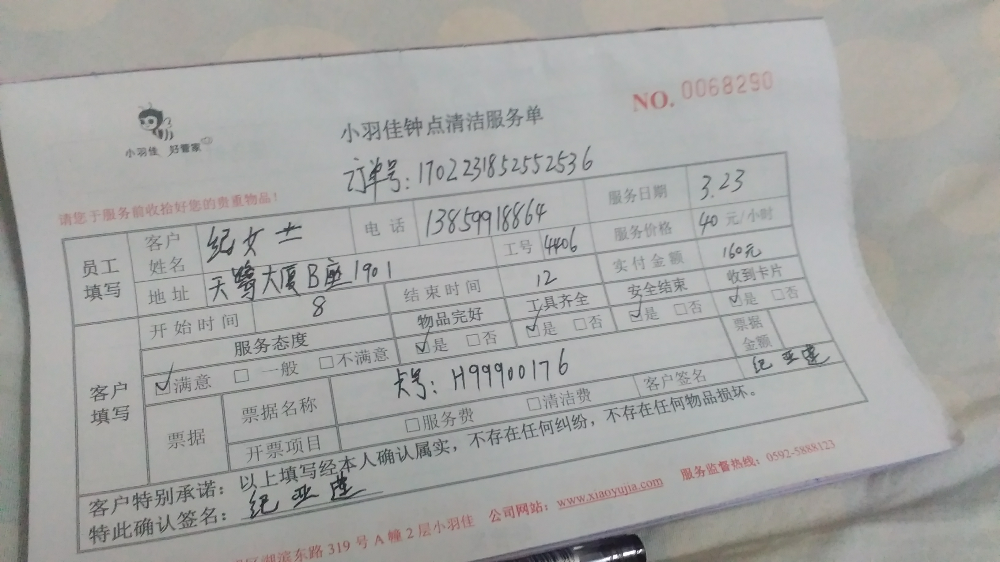 NO. 0068290
小羽佳 好管家
小羽佳钟点清洁服务单
订单号: 1702231852552536
请您于服务前收拾好您的贵重物品!
员工填写 客户姓名 纪女士 电话 13859918864 服务日期 3.23
地址 天鹭大厦B座1901 工号 4406 服务价格 40 元/小时
开始时间 8 结束时间 12 实付金额 160元
客户填写 服务态度 物品完好 工具齐全 安全结束 收到卡片
☑满意 □一般 □不满意 ☑是 □否 ☑是 □否 ☑是 □否 ☑是 □否
票据 票据名称 卡号: H99900176 票据金额
开票项目 □服务费 □清洁费 客户签名 纪亚莲
客户特别承诺: 以上填写经本人确认属实, 不存在任何纠纷, 不存在任何物品损坏。
特此确认签名: 纪亚莲
湖滨东路 319 号 A 幢 2 层小羽佳 公司网站: www.xiaoyujia.com 服务监督热线: 0592-5888123